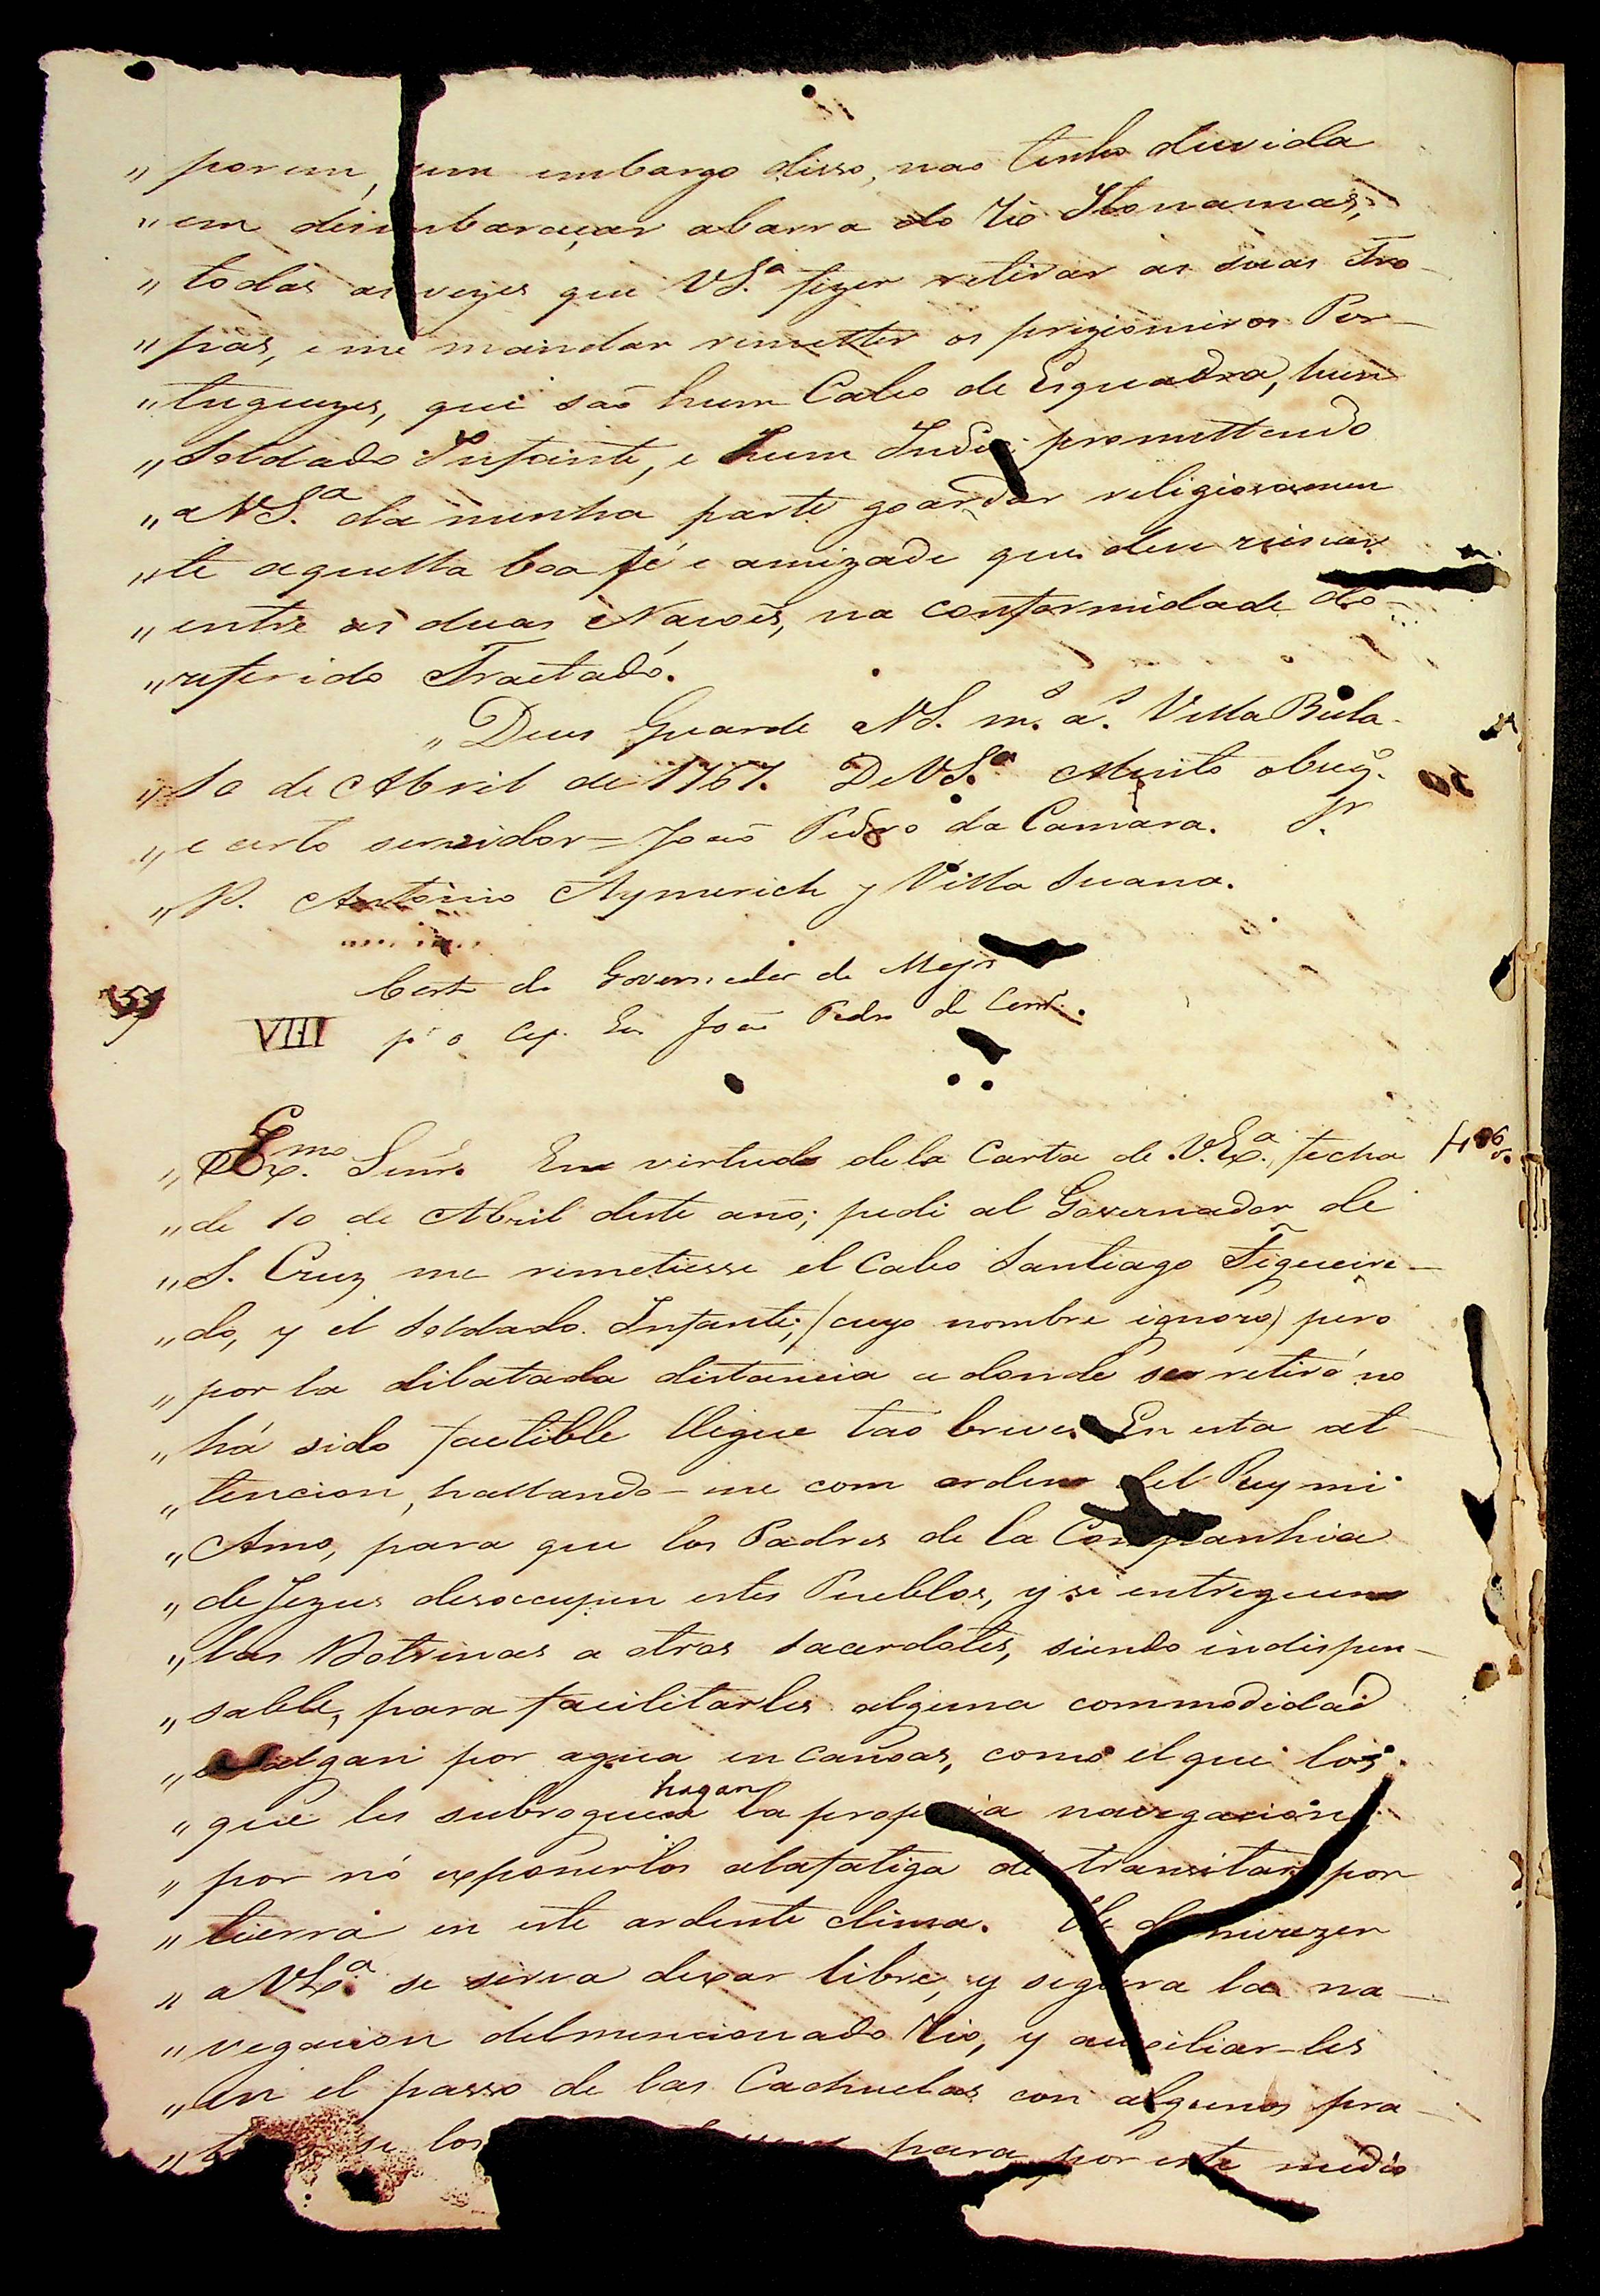 " porem, sem embargo disso, nao tenho duvida
" em desembaraçar abarra do Rio Itonamas,
" todas as vezes que VS.ª fizer retirar as suas Tro-
" pas, e me mandar remetter os prizioneiros Por-
" tuguezes, que são hum Cabo de Esquadra, hum
" Soldado Infante, e hum Indio; promettendo
" a VS.ª da minha parte goardar religiosamen
" te aquella boa fé e amizade que deve reinar
" entre as duas Naçoēs, na conformidade do
" referido Tractado.
" Deus Guarde a VS. m.s a.s Villa Bela
" 10 de Abril de 1767. De VS.ª Muito obrig.o
" e certo servidor = João Pedro da Camara. Sr
" D. Antonio Aymerich y Villa Juana.
Carta do Governador de Mojos
VIII pª o Cap. Gen João Pedro da Cam.
" Ex.mo Senr. En virtude de la Carta de V.Ex.ª, fecha
" de 10 de Abril deste ano; pedi al Governador de
" S. Cruz me remetiesse el Cabo Santiago Figueire-
" do, y el Soldado Infante; (cuyo nombre ignoro) pero
" por la dilatada distancia a donde se retiró no
" há sido factible llegue tao breve. En esta at-
" tencion, hallando-me com orden del Rey mi
" Amo, para que los Padres de la Companhia
" de Jezus desoccupen estes Pueblos, y se entreguen
" las Dotrinas a otros Sacerdotes, siendo indispen-
" sable, para facilitarles alguna commodidad
" salgan por agua en canoas, como el que los
" que les subroguen hagan la propria navegacion,
" por nó exponerlos alafatiga de transitar por
" tierra en este ardente clima. He de merezer
" a VEx.ª se sirva dexar libre, y segura la na-
" vegacion delmencionado Rio, y auxiliar-les
" en el passo de las Cachuelas con algunos pra-
" se los para por este medio